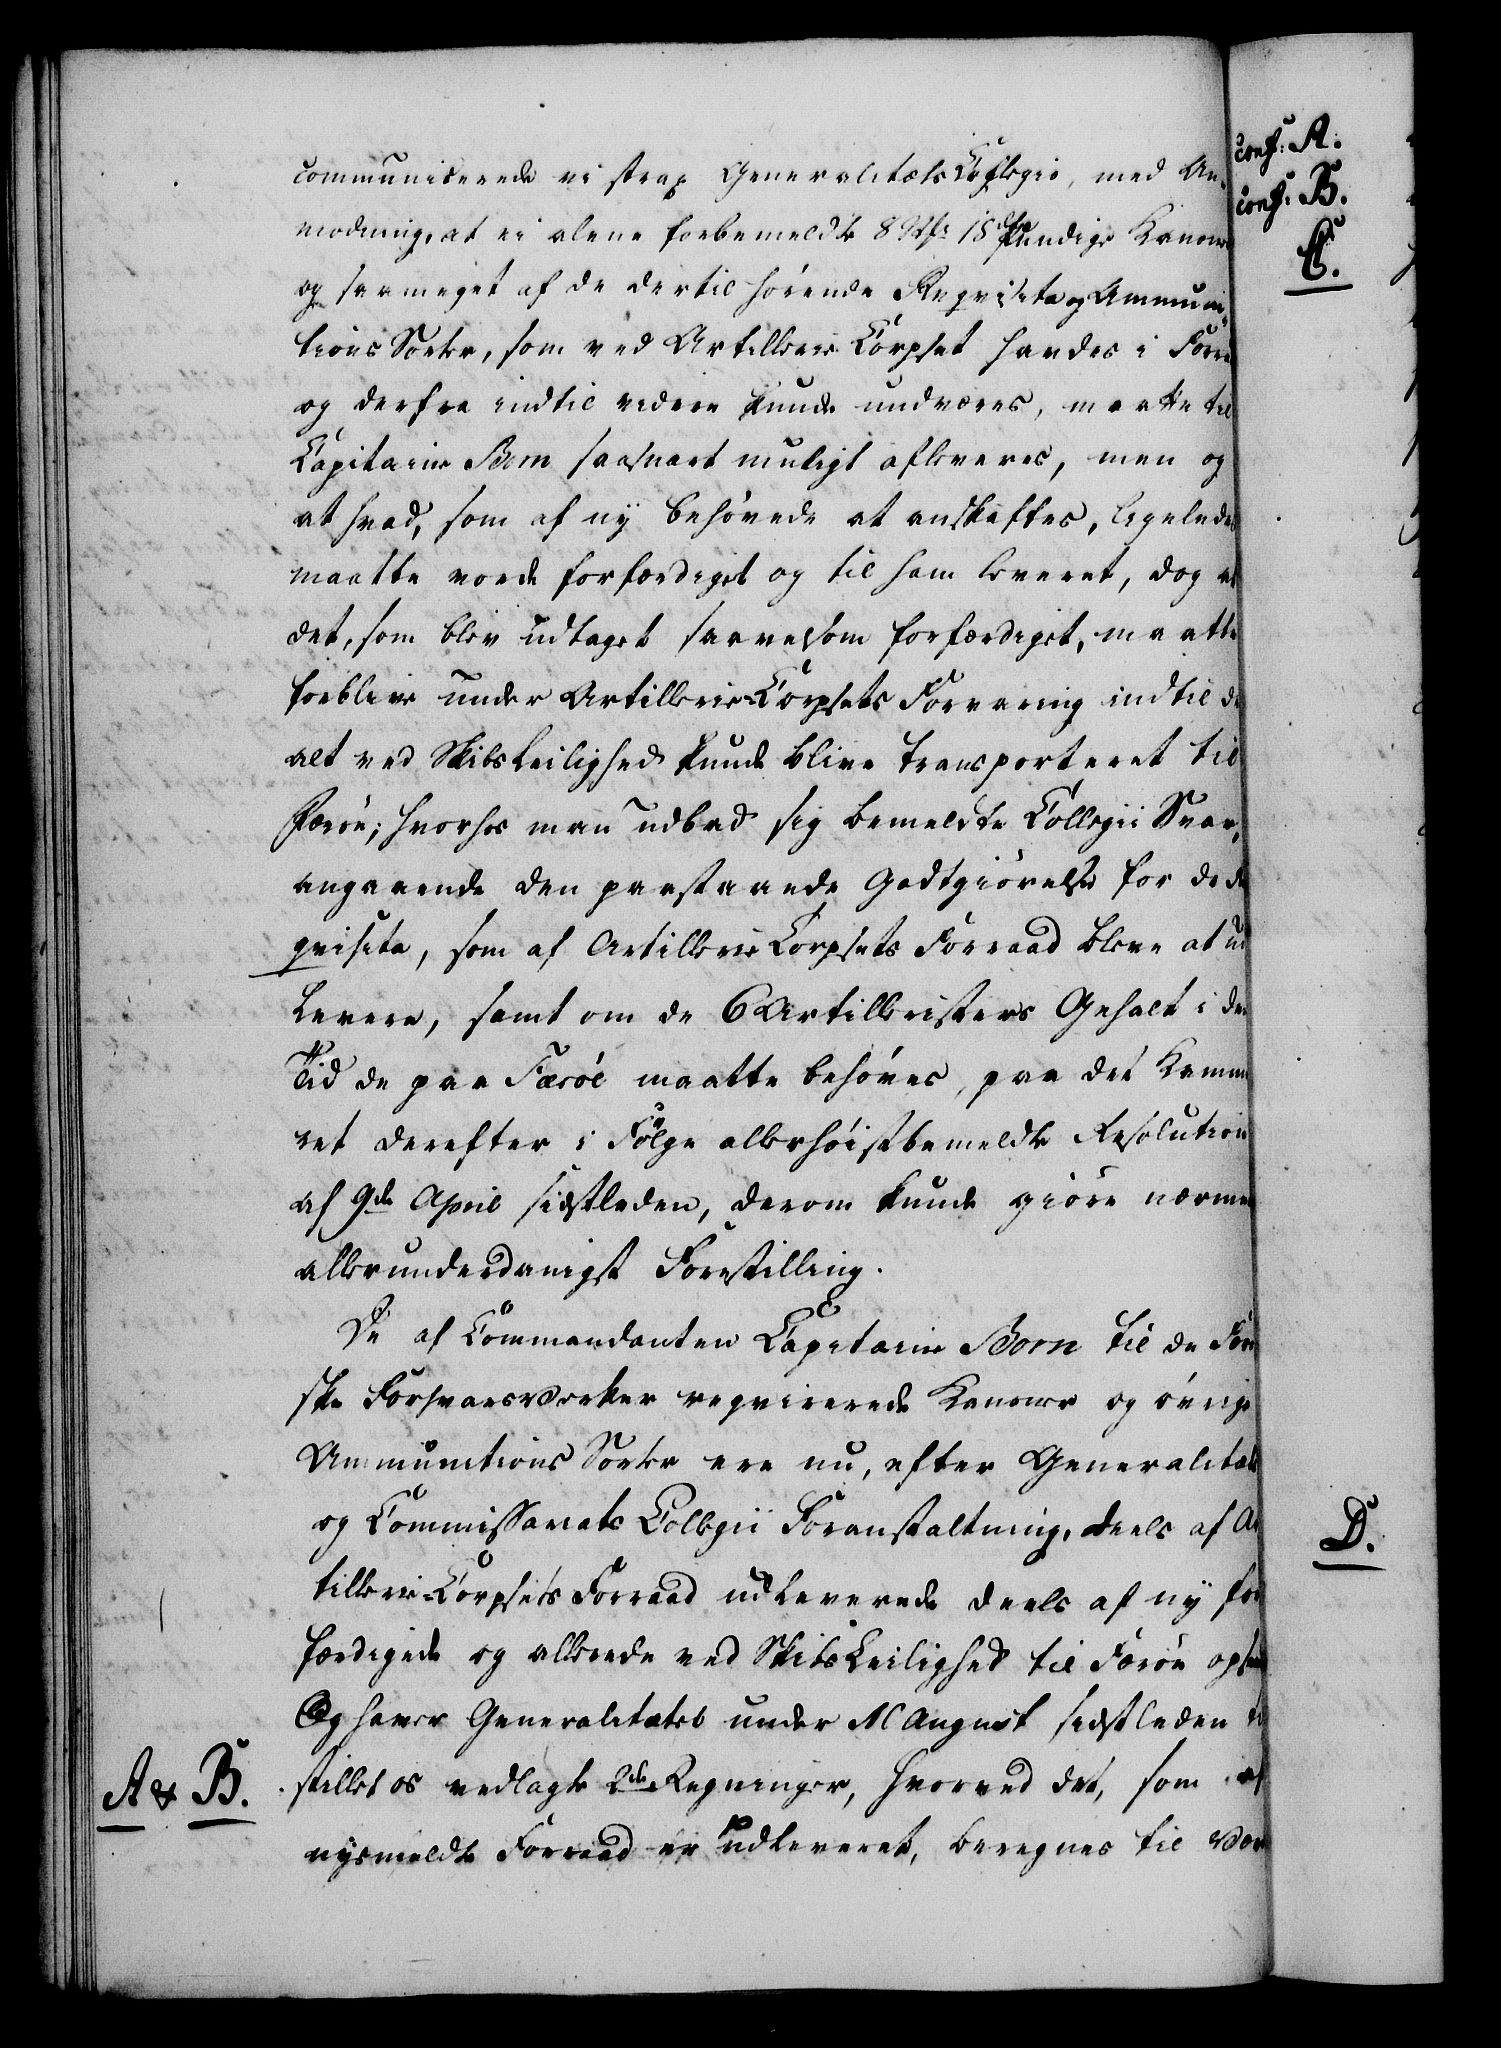 communicerede vi strax Generalitæts Collegio, med An-
modning, at ei alene forbemeldte 8 Stk: 18 pundige Kanoner
og saameget af de dertil hørende Reqvisita og Ammuni-
tions Sorter, som ved Artillerie Corpset havdes i Forra
og derfra indtil videre kunde undværes, maatte til
Capitain Born saasnart muligt afleveres, men og
at hvad, som af ny behøvede at anskaffes, ligeledes
maatte vorde forfærdiget og til ham leveret, dog at
det, som blev udtaget saavelsom forfærdiget, maatte
forblive under Artillerie-Corpsets Forvaring indtil de
alt ved Skibsleilighed kunde blive transporteret til
Færøe; hvorhos man udbad sig bemeldte Collegii Svar,
angaaende den paastaaende Godtgiørelse for de Re
qvisita, som af Artillerie Corpsets Forraad bleve at ud
levere, samt om de 6 Artilleristers Gehalt i den
Tid de paa Færøe maatte behøves, paa det Kamme
ret derefter i Følge allerhøistbemeldte Resolution
af 9de April sidstleden, derom kunde giøre nærmere
allerunderdanigst Forestilling.
De af Commandanten Capitain Born til de Færø
ske Forsvarsværker reqvirerede Kanoner og øvrige
Ammunitions Sorter ere nu, efter Generalitæts
og Commissariats Collegii Foranstaltning, deels af Ar
tillerie-Corpsets Forraad udleverede deels af ny for
færdigede og allerede ved Skibsleilighed til Færøe opsen
Og haver Generalitetet under 11 August sidstleden til
A & B. stillet os vedlagte 2de Regninger, hvorved det, som af
nysmeldte Forraad er udleveret, beregnes til Vær
conf: A.
conf: B.
C.
D.